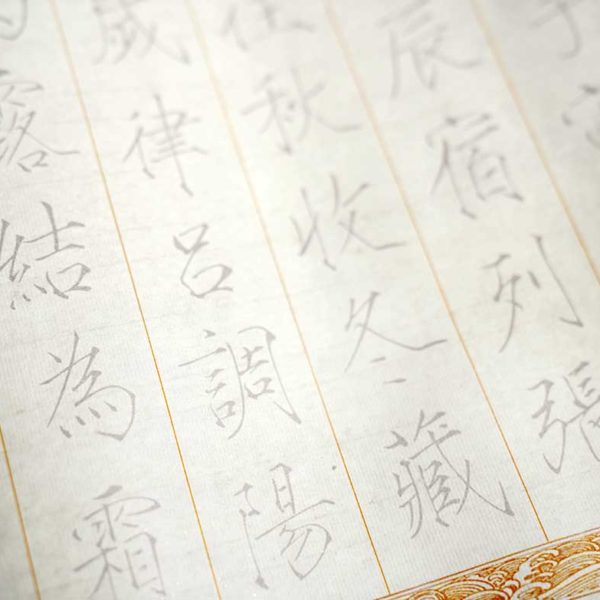 辰宿列張
往秋收冬藏
歲律呂調陽
露結為霜